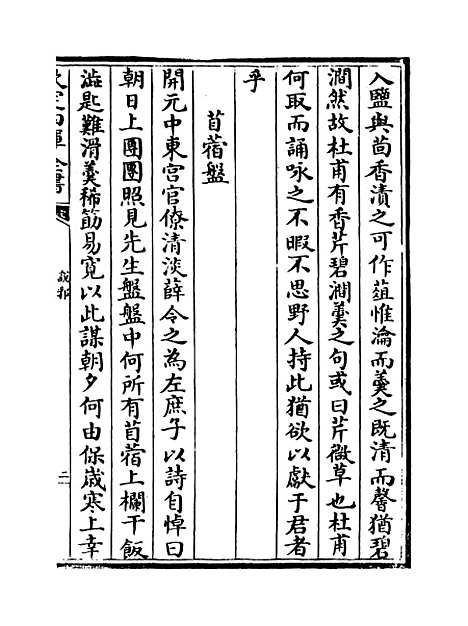 入鹽與茴香漬之可作葅惟瀹而羮之既清而馨猶碧
澗然故杜甫有香芹碧澗羮之句或曰芹微草也杜甫
何取而誦咏之不暇不思野人持此猶欲以獻于君者
乎
苜蓿盤
開元中東宫官僚清淡薛令之為左庶子以詩自悼曰
朝日上團團照見先生盤盤中何所有苜蓿上欄干飯
澁匙難滑羮稀筯易寛以此謀朝夕何由保歳寒上幸
欽定四庫全書
說郛
二